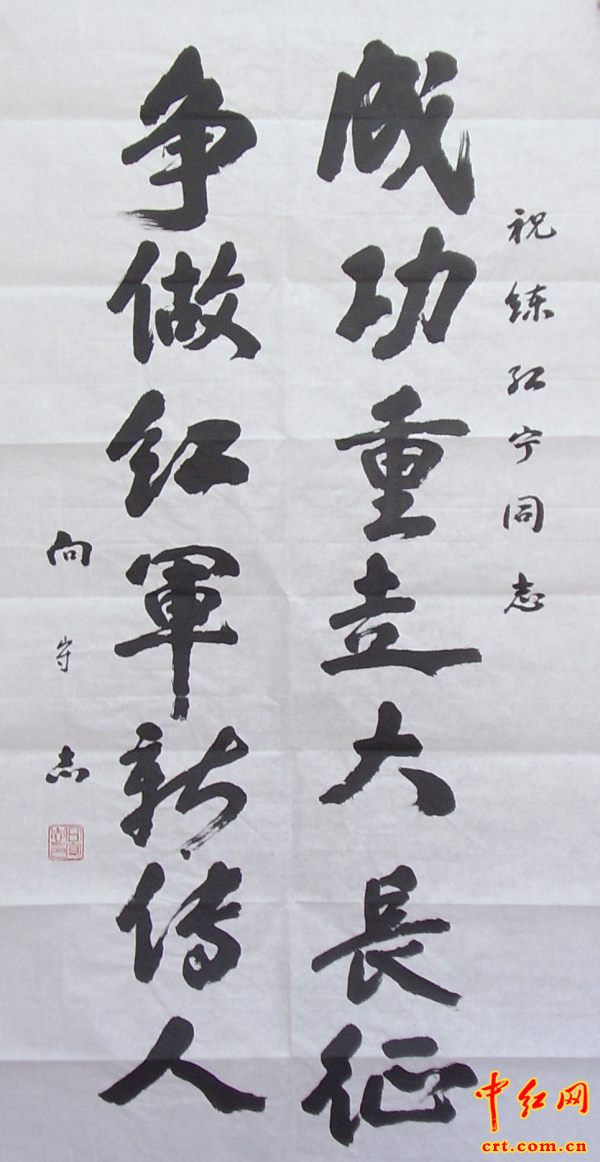 祝练红宁同志
成功重走大長征
争做红軍新传人
向守志
中红网
crt.com.cn